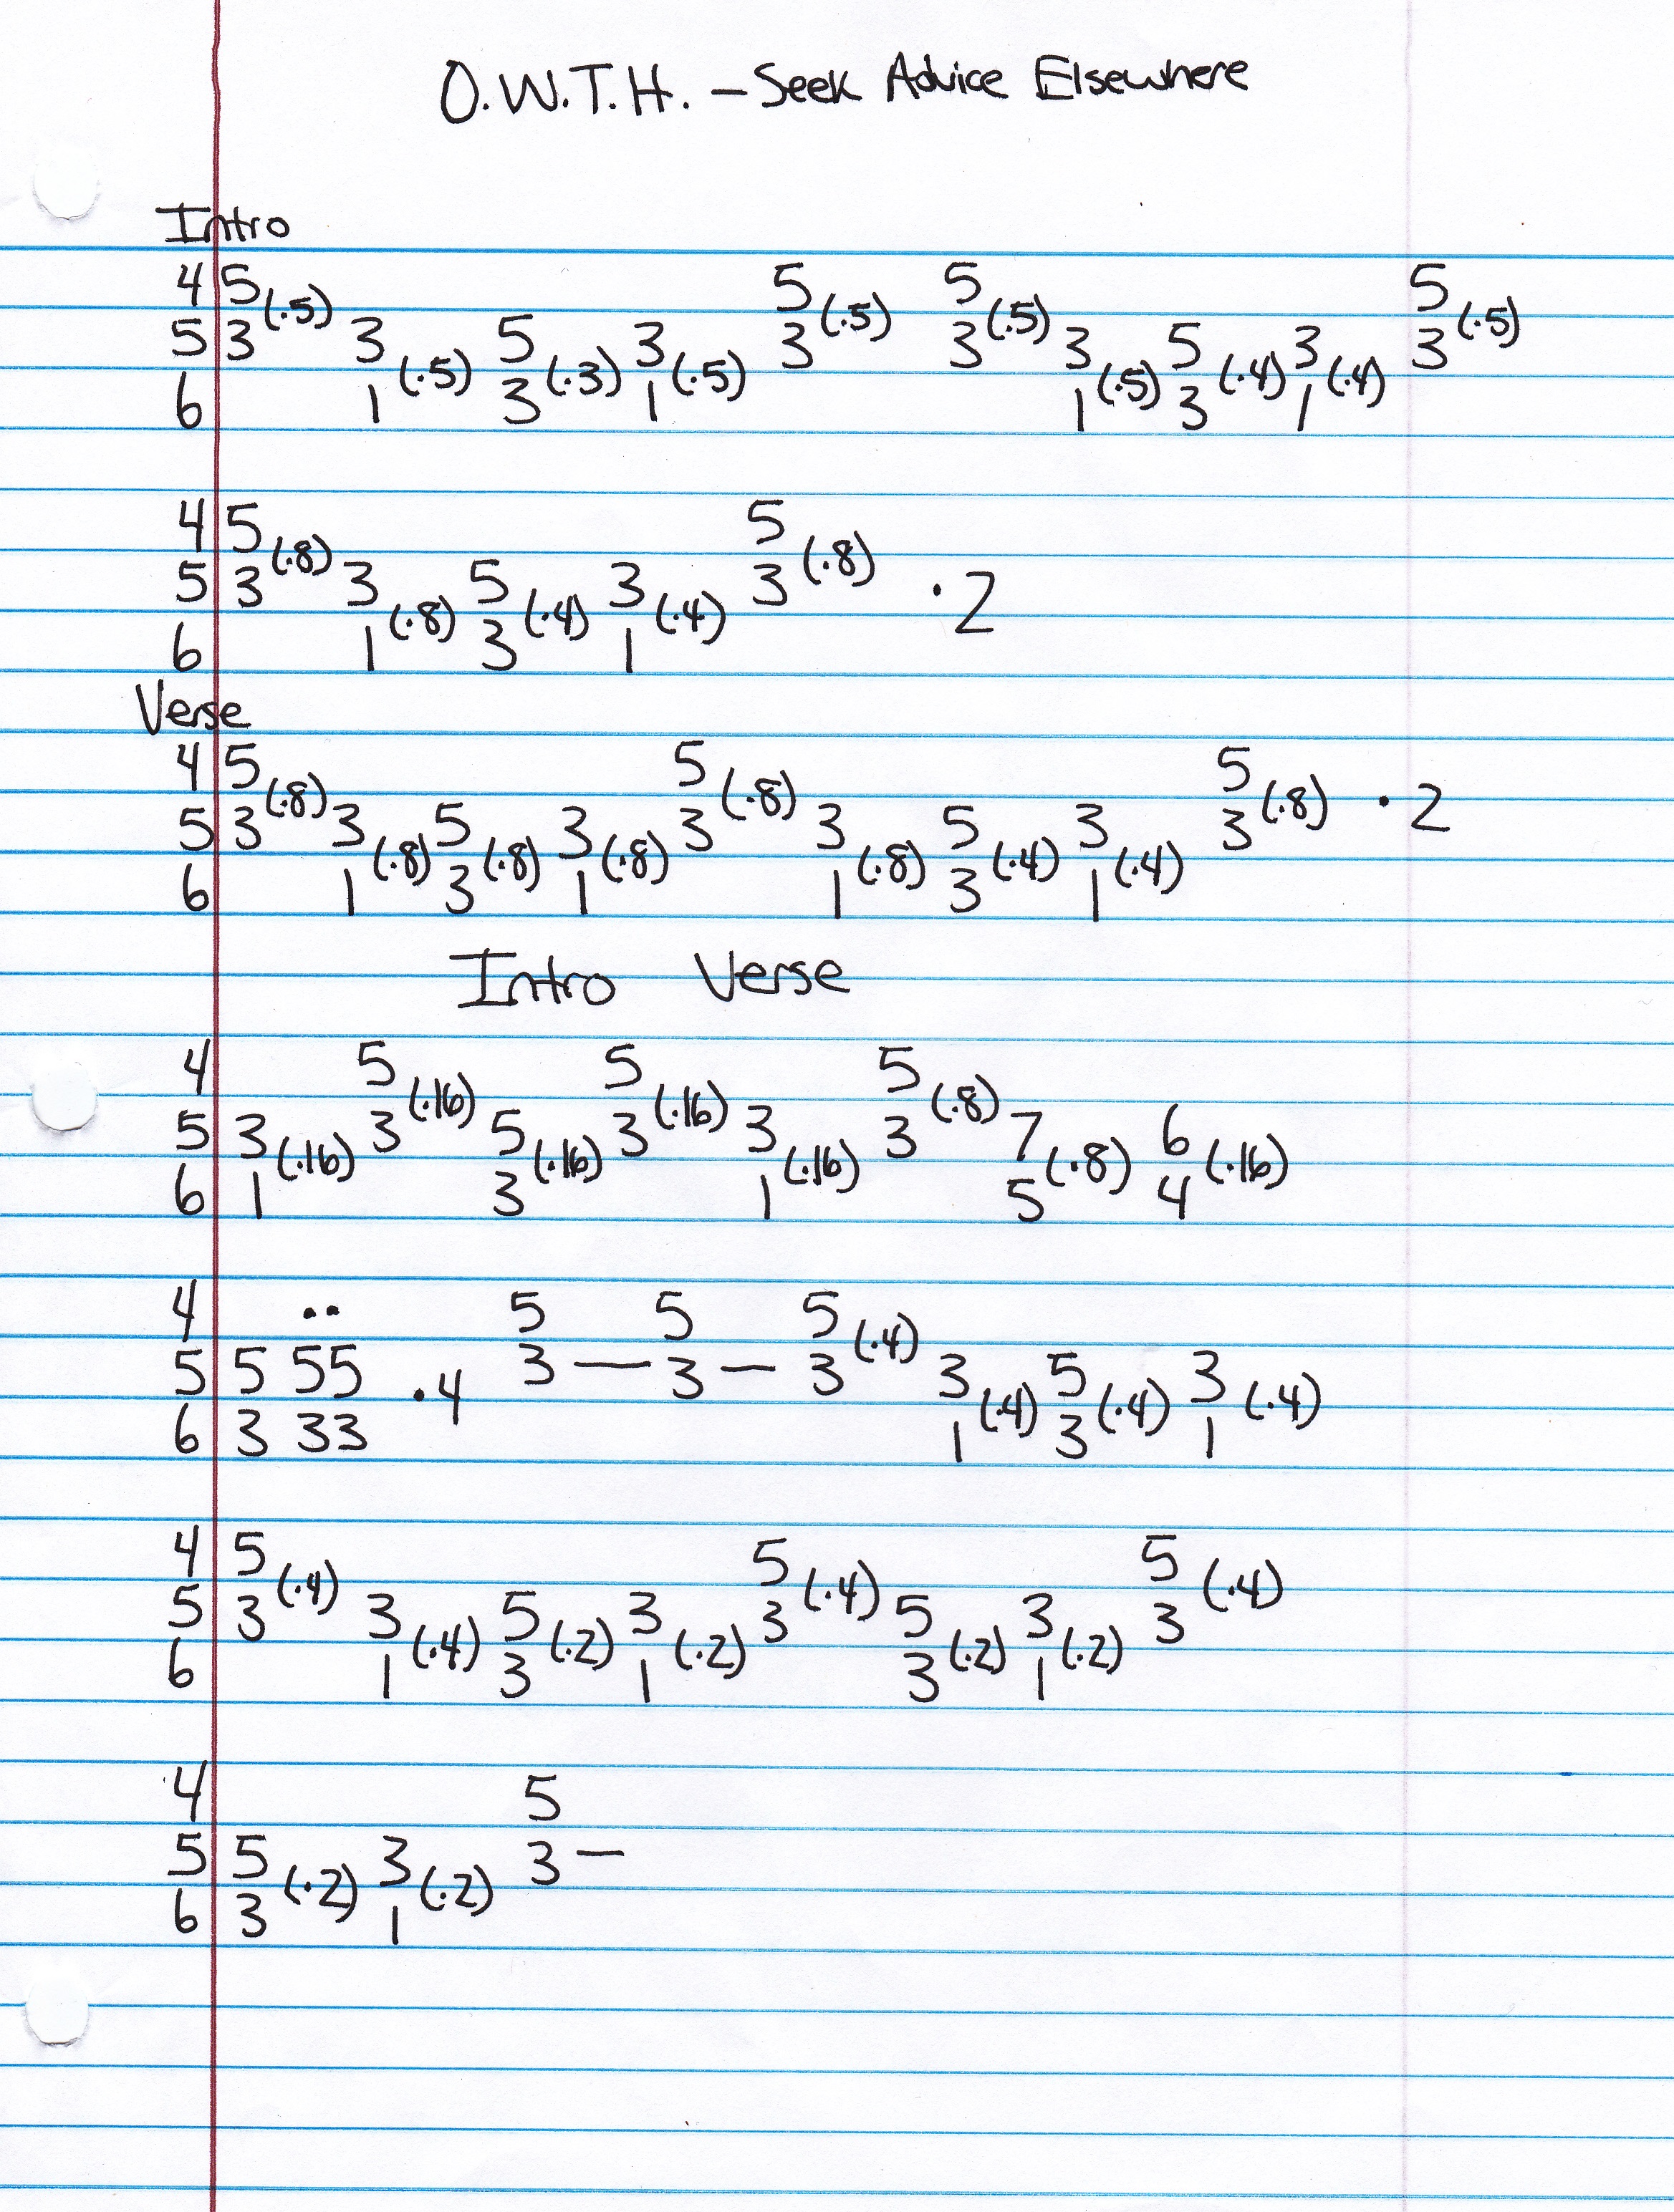 O.W.T.H. - Seek Advice Elsewhere
Intro
4 5 5 5 5
5 3 (.5) 3 5 3 3 (.5) 3 (.5) 3 5 3 3 (.5)
6 1 (.5) 3 (.3) 1 (.5) 1 (.5) 3 (.4) 1 (.4)
4 5 5
5 3 (.8) 3 5 3 3 (.8) . 2
6 1 (.8) 3 (.4) 1 (.4)
Verse
4 5 5 5
5 3 (.8) 3 5 3 3 (.8) 3 5 3 3 (.8) . 2
6 1 (.8) 3 (.8) 1 (.8) 1 (.8) 3 (.4) 1 (.4)
Intro Verse
4 5 5 5
5 3 3 (.16) 5 3 (.16) 3 3 (.8) 7 6
6 1 (.16) 3 (.16) 1 (.16) 5 (.8) 4 (.16)
4 .. 5 5 5
5 5 55 . 4 3 — 3 — 3 (.4) 3 5 3
6 3 33 1 (.4) 3 (.4) 1 (.4)
4 5 5 5
5 3 (.4) 3 5 3 3 (.4) 5 3 3 (.4)
6 1 (.4) 3 (.2) 1 (.2) 3 (.2) 1 (.2)
4 5
5 5 3 3 —
6 3 (.2) 1 (.2)